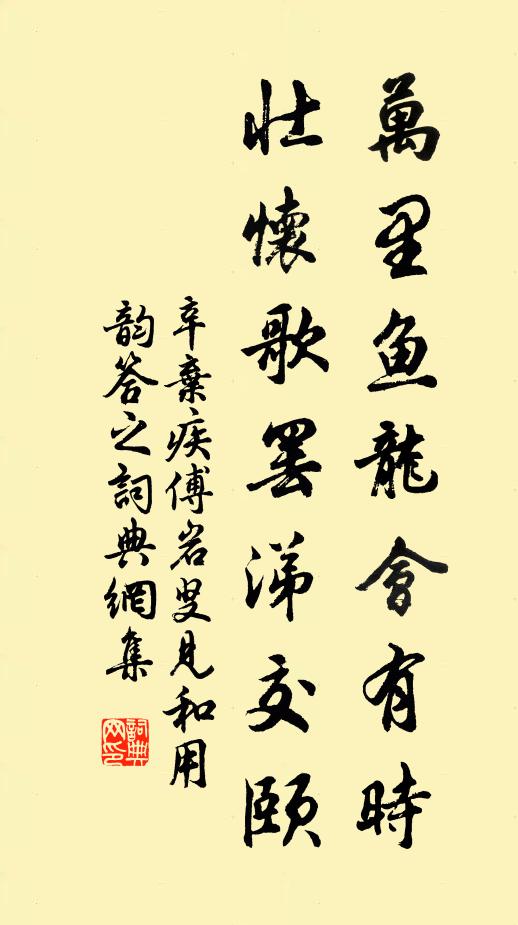 萬里鱼龍會有時
壯懷歌罢涕交頤
辛棄疾傅岩叟見和用
韵答之詞典網集
詞典
网印